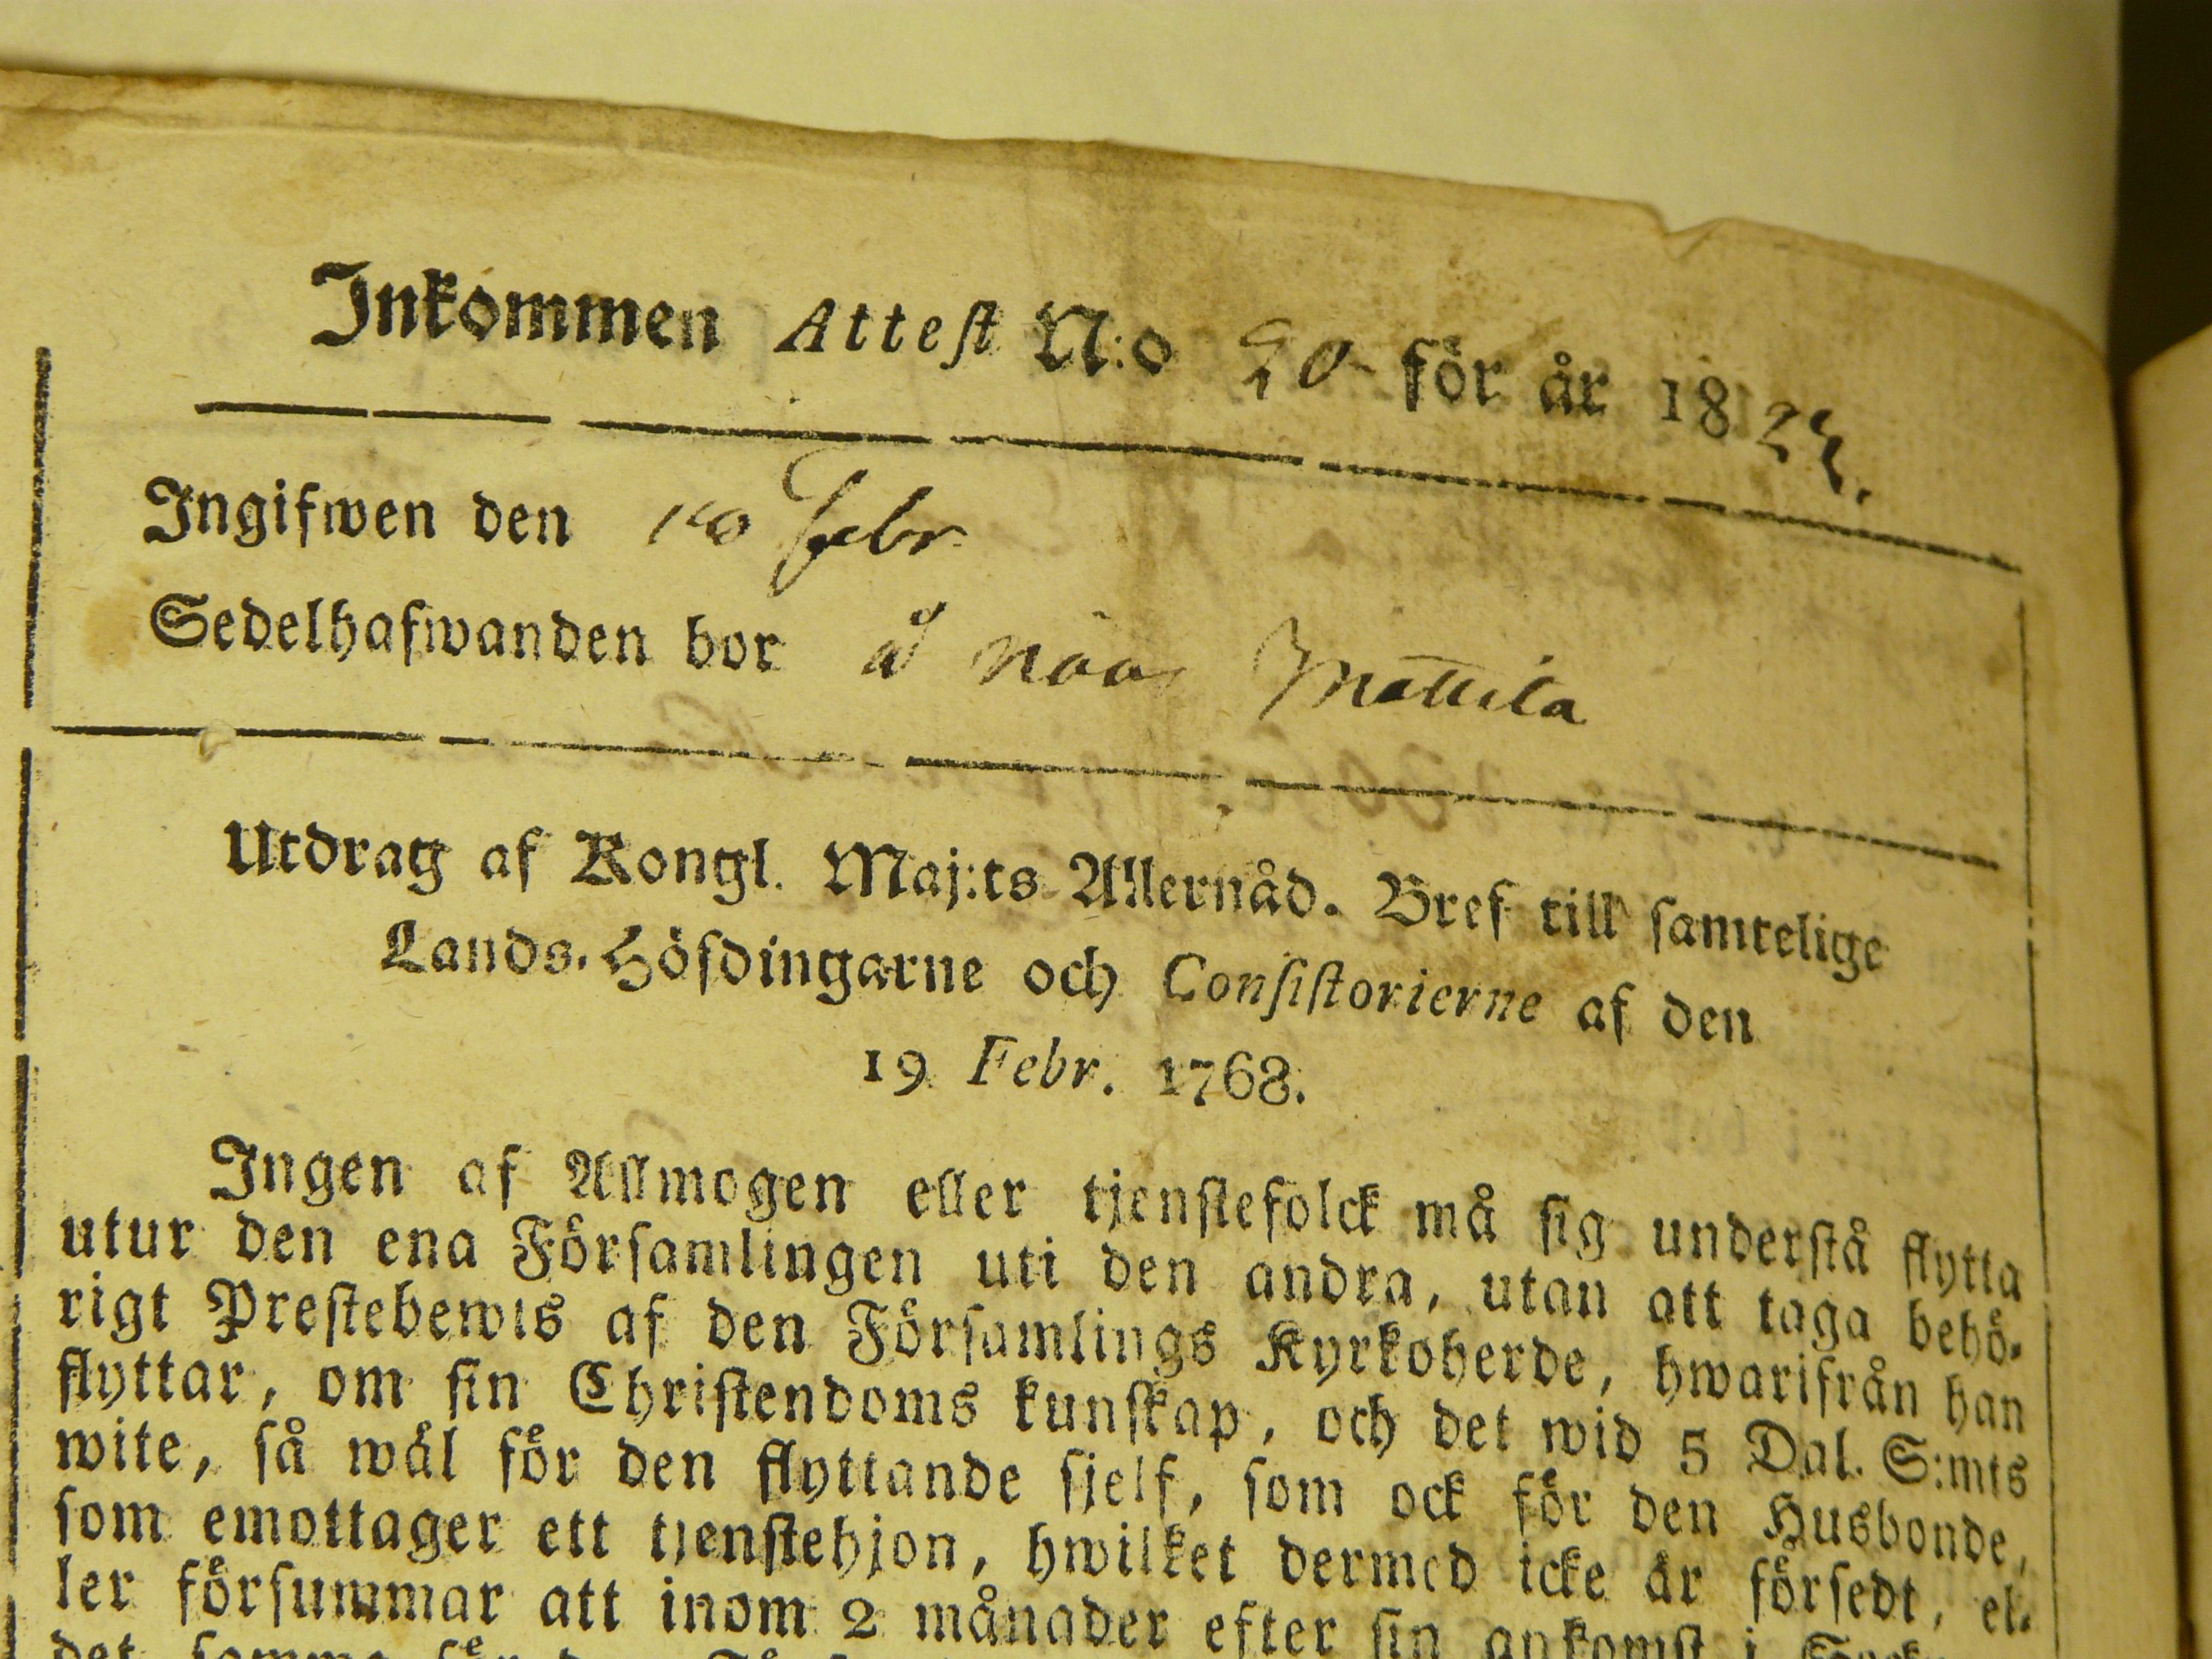 Inkommen Attest N:o 20 för år 1823.
Ingifwen den 10 Febr.
Sedelhafwanden bor å Mattila
Utdrag af Kongl. Maj:ts Allernåd. Bref till samtelige
Lands-Höfdingarne och Consistorierne af den
19 Febr. 1768.
Ingen af Allmogen eller tjenstefolck må sig understå flytta
utur den ena Församlingen uti den andra, utan att taga behö-
rigt Prestebewis af den Församlings Kyrkoherde, hwarifrån han
flyttar, om sin Christendoms kunskap, och det wid 5 Dal. S:mts
wite, så wäl för den flyttande sjelf, som ock för den Husbonde,
som emottager ett tjenstehjon, hwilket dermed icke är försedt, el-
ler försummar att inom 2 månader efter sin ankomst i
det samma